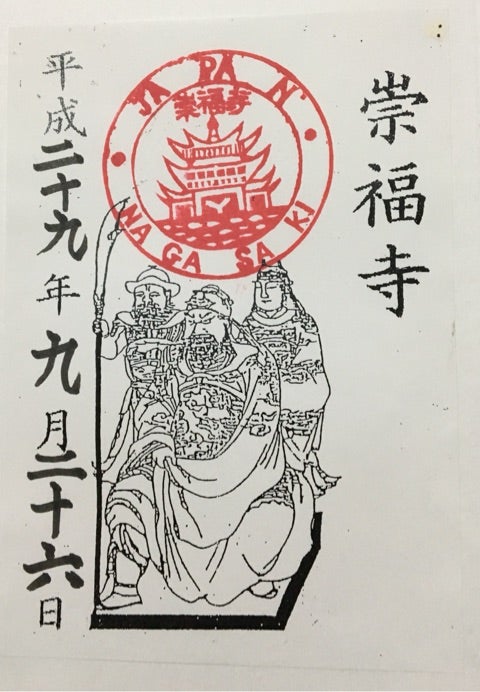 崇福寺
JAPAN
崇福寺
NAGASAKI
平成二十九年九月二十六日